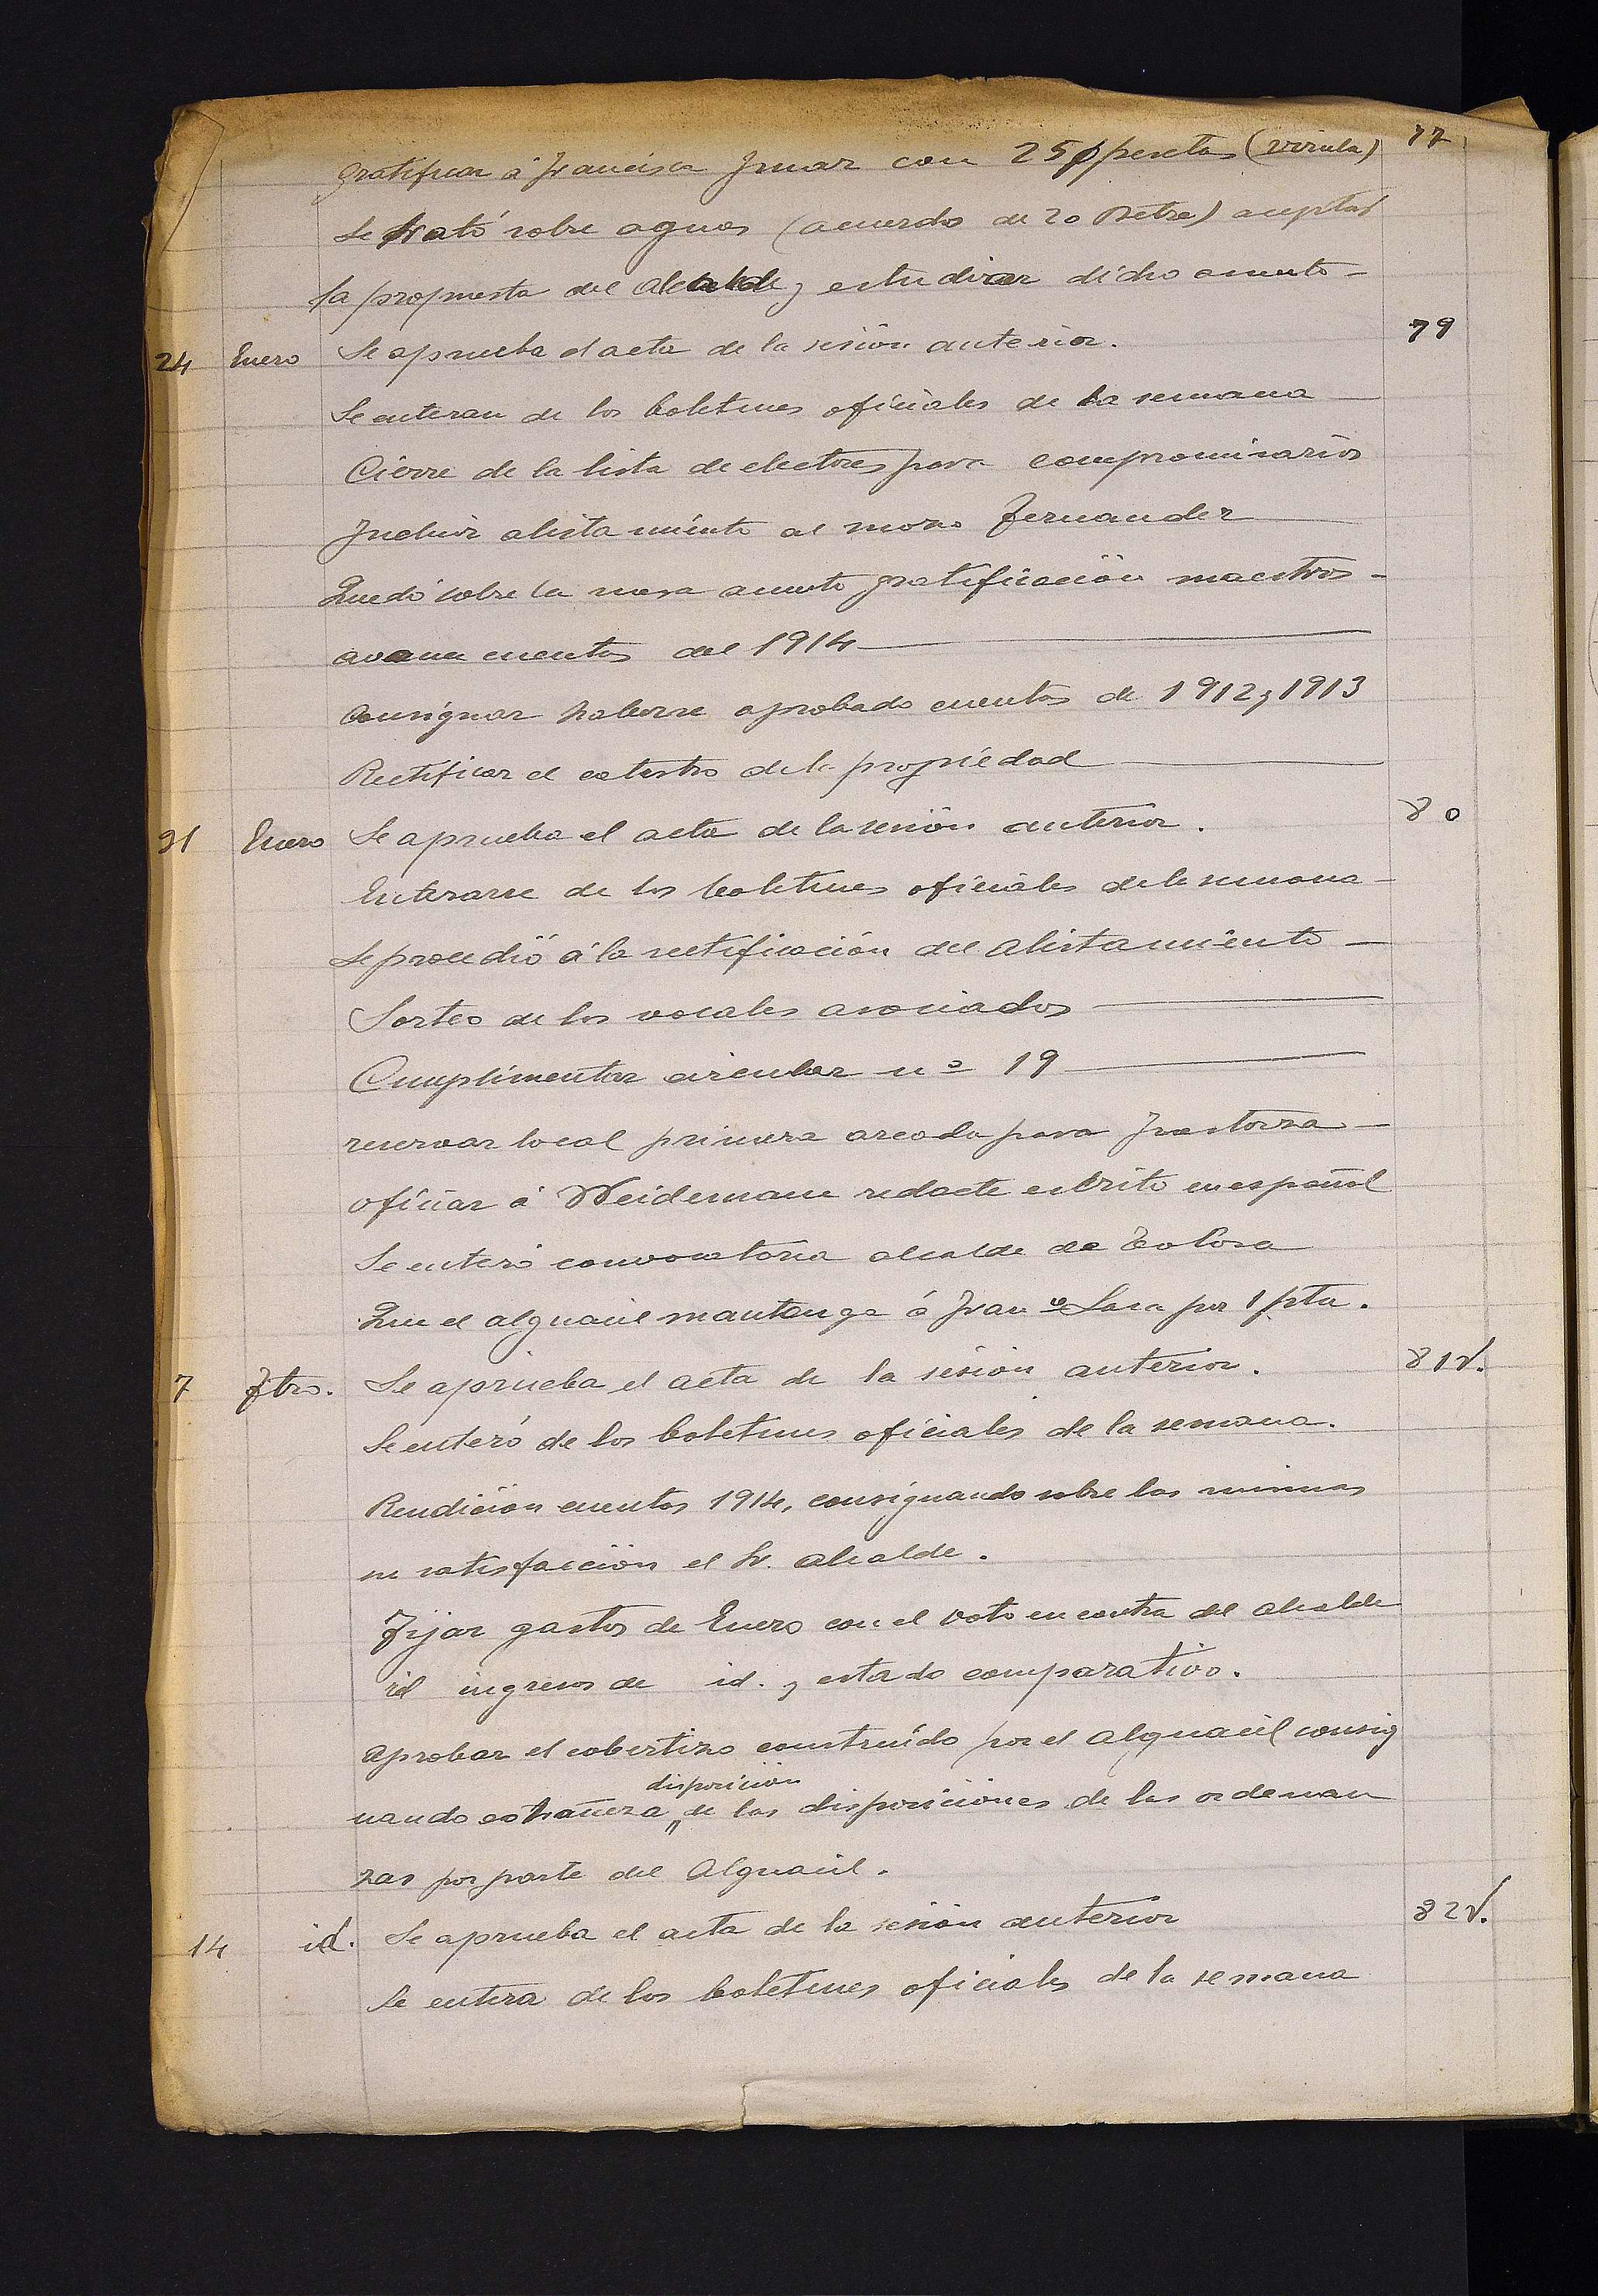 gratificar á Francisca con 25 pesetas (viruela) 77
Se trató sobre aguas (acuerdo de 20 Dbre) aceptar
la propuesta del Alcalde y estudiar dicho asunto -
24 Enero Se aprueba el acta de la sesión anterior. 79
Se enteran de los boletines oficiales de la semana
Cierre de la lista de electores para compromisarios
Incluir alistamiento al mozo Fernandez
Quedó sobre la mesa asunto gratificación maestros -
cuentas del 1914
Consignar haberse aprobado cuentas de 1912 y 1913
Rectificar el catastro de la propiedad
31 Enero Se aprueba el acta de la sesión anterior. 80
Enterarse de los boletines oficiales de la semana -
Se procedió á la rectificación del alistamiento -
Sorteo de los vocales asociados
Cumplimentar circular nº 19
reservar local primera arcada para
oficiar á Weidemann redacte escrito en español
Se enteró convocatoria alcalde de Tolosa
Que el alguacil mantenga á Fran co Lasa por 1 pta.
7 Fbro. Se aprueba el acta de la sesión anterior. 81v.
Se enteró de los boletines oficiales de la semana.
Rendición cuentas 1914, consignando sobre las mismas
su satisfacción el Sr. alcalde.
Fijar gastos de Enero con el voto en contra del alcalde
id ingresos de id. y estado comparativo.
Aprobar el cobertizo construído por el alguacil consig
disposición
nando extrañeza " de las disposiciones de las ordenan
zas por parte del Alguacil.
14 id. Se aprueba el acta de la sesión anterior 82v.
Se entera de los boletines oficiales de la semana